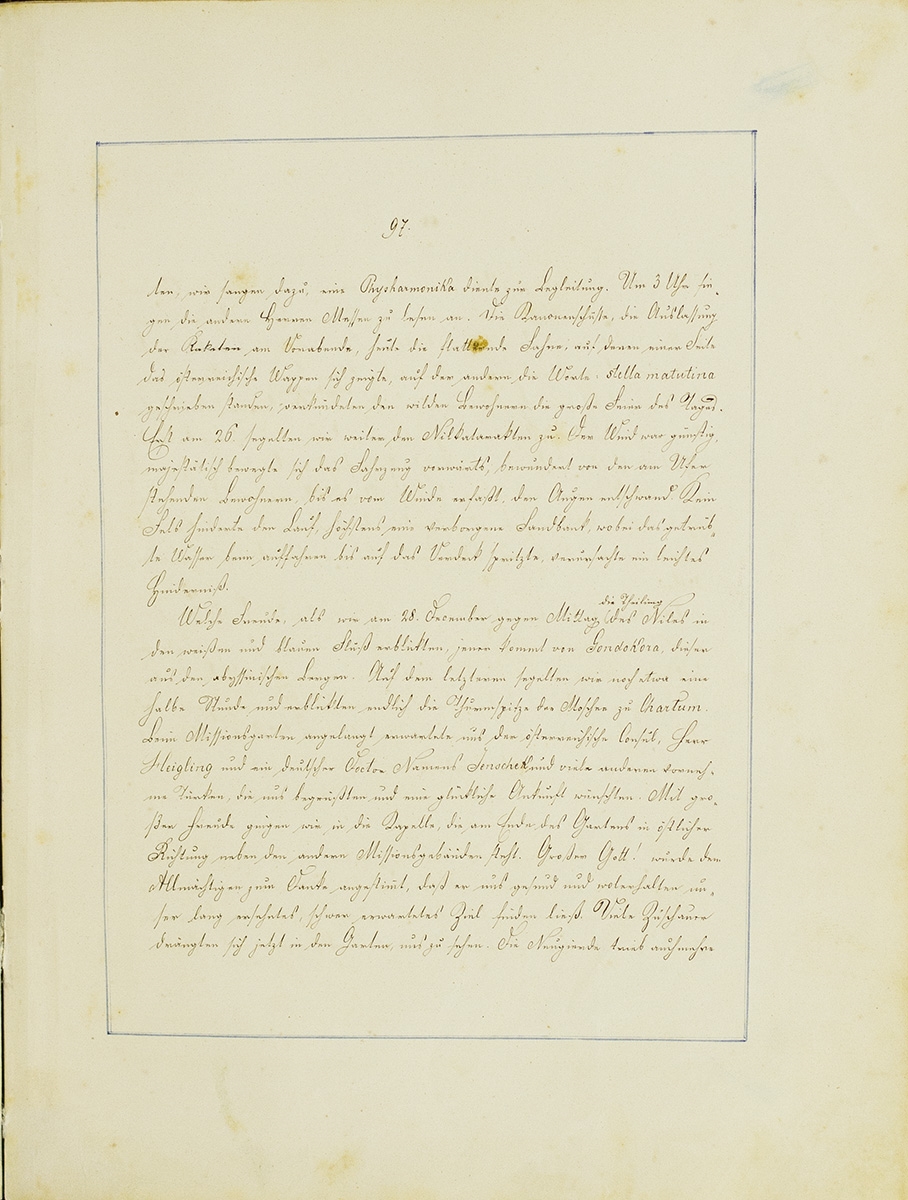 97.
ten, wir sangen dazu, eine Physharmonika diente zur Begleitung. Um 3 Uhr fin-
gen die andern Herren Messen zu lesen an. Die Kanonenschüße, die Auslassung
der Raketen am Vorabende, heute die flatternde Fahne, auf deren einer Seite
das österreichische Wappen sich zeigte, auf der andern die Worte: stella matutina
geschrieben standen, verkündeten den wilden Bewohnern die große Feier des Tages.
Erst am 26. segelten wir weiter, den Nilkatarakten zu. Der Wind war günstig,
majestätisch bewegte sich das Fahrzeug vorwärts, bewundert von den am Ufer
stehenden Bewohnern, bis es vom Winde erfaßt, den Augen entschwand. Kein
Fels hinderte den Lauf, höchstens eine verborgene Sandbank, wobei das getrüb-
te Wasser beim auffahren bis auf das Verdeck spritzte, verursachte ein leichtes
Hinderniß.
Welche Freude, als wir am 28. December gegen Mittag die Theilung des Niles in
den weißen und blauen Fluß erblickten, jener kommt von Gondokora, dieser
aus den abyssinischen Bergen. Auf dem letzteren segelten wir noch etwa eine
halbe Stunde und erblickten endlich die Thurmspitze der Moschee zu Chartum.
Beim Missionsgarten angelangt erwartete uns der österreichische Consul, Herr
Heigling und ein deutscher Doctor Namens Jenschek und viele anderen vorneh-
me Türken, die uns begrüßten und eine glückliche Ankunft wünschten. Mit gro-
ßer Freude gingen wir in die Kapelle, die am Ende des Gartens in östlicher
Richtung neben den andern Missionsgebäuden steht. Großer Gott! wurde dem
Allmächtigen zum Danke angestimt, daß er uns gesund und wolerhalten un-
ser lang ersehntes, schwer erwartetes Ziel finden ließ. Viele Zuschauer
drängten sich jetzt in den Garten, uns zu sehen. Die Neugierde trieb auch mehre